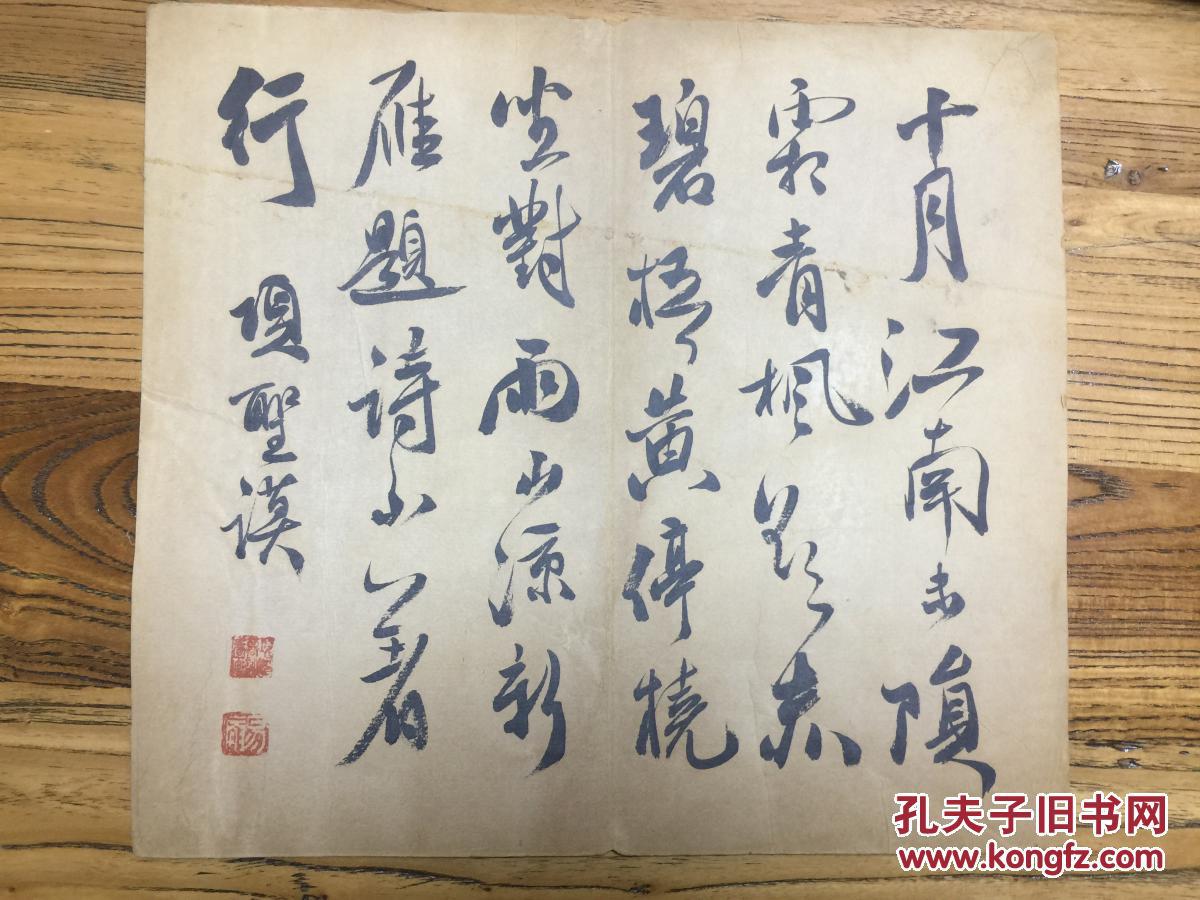 十月江南未隕
霜青楓欲赤
碧梧黃停橈
坐對雨山涼新
雁題詩小著
行 項聖謨
孔夫子旧书网
www.kongfz.com